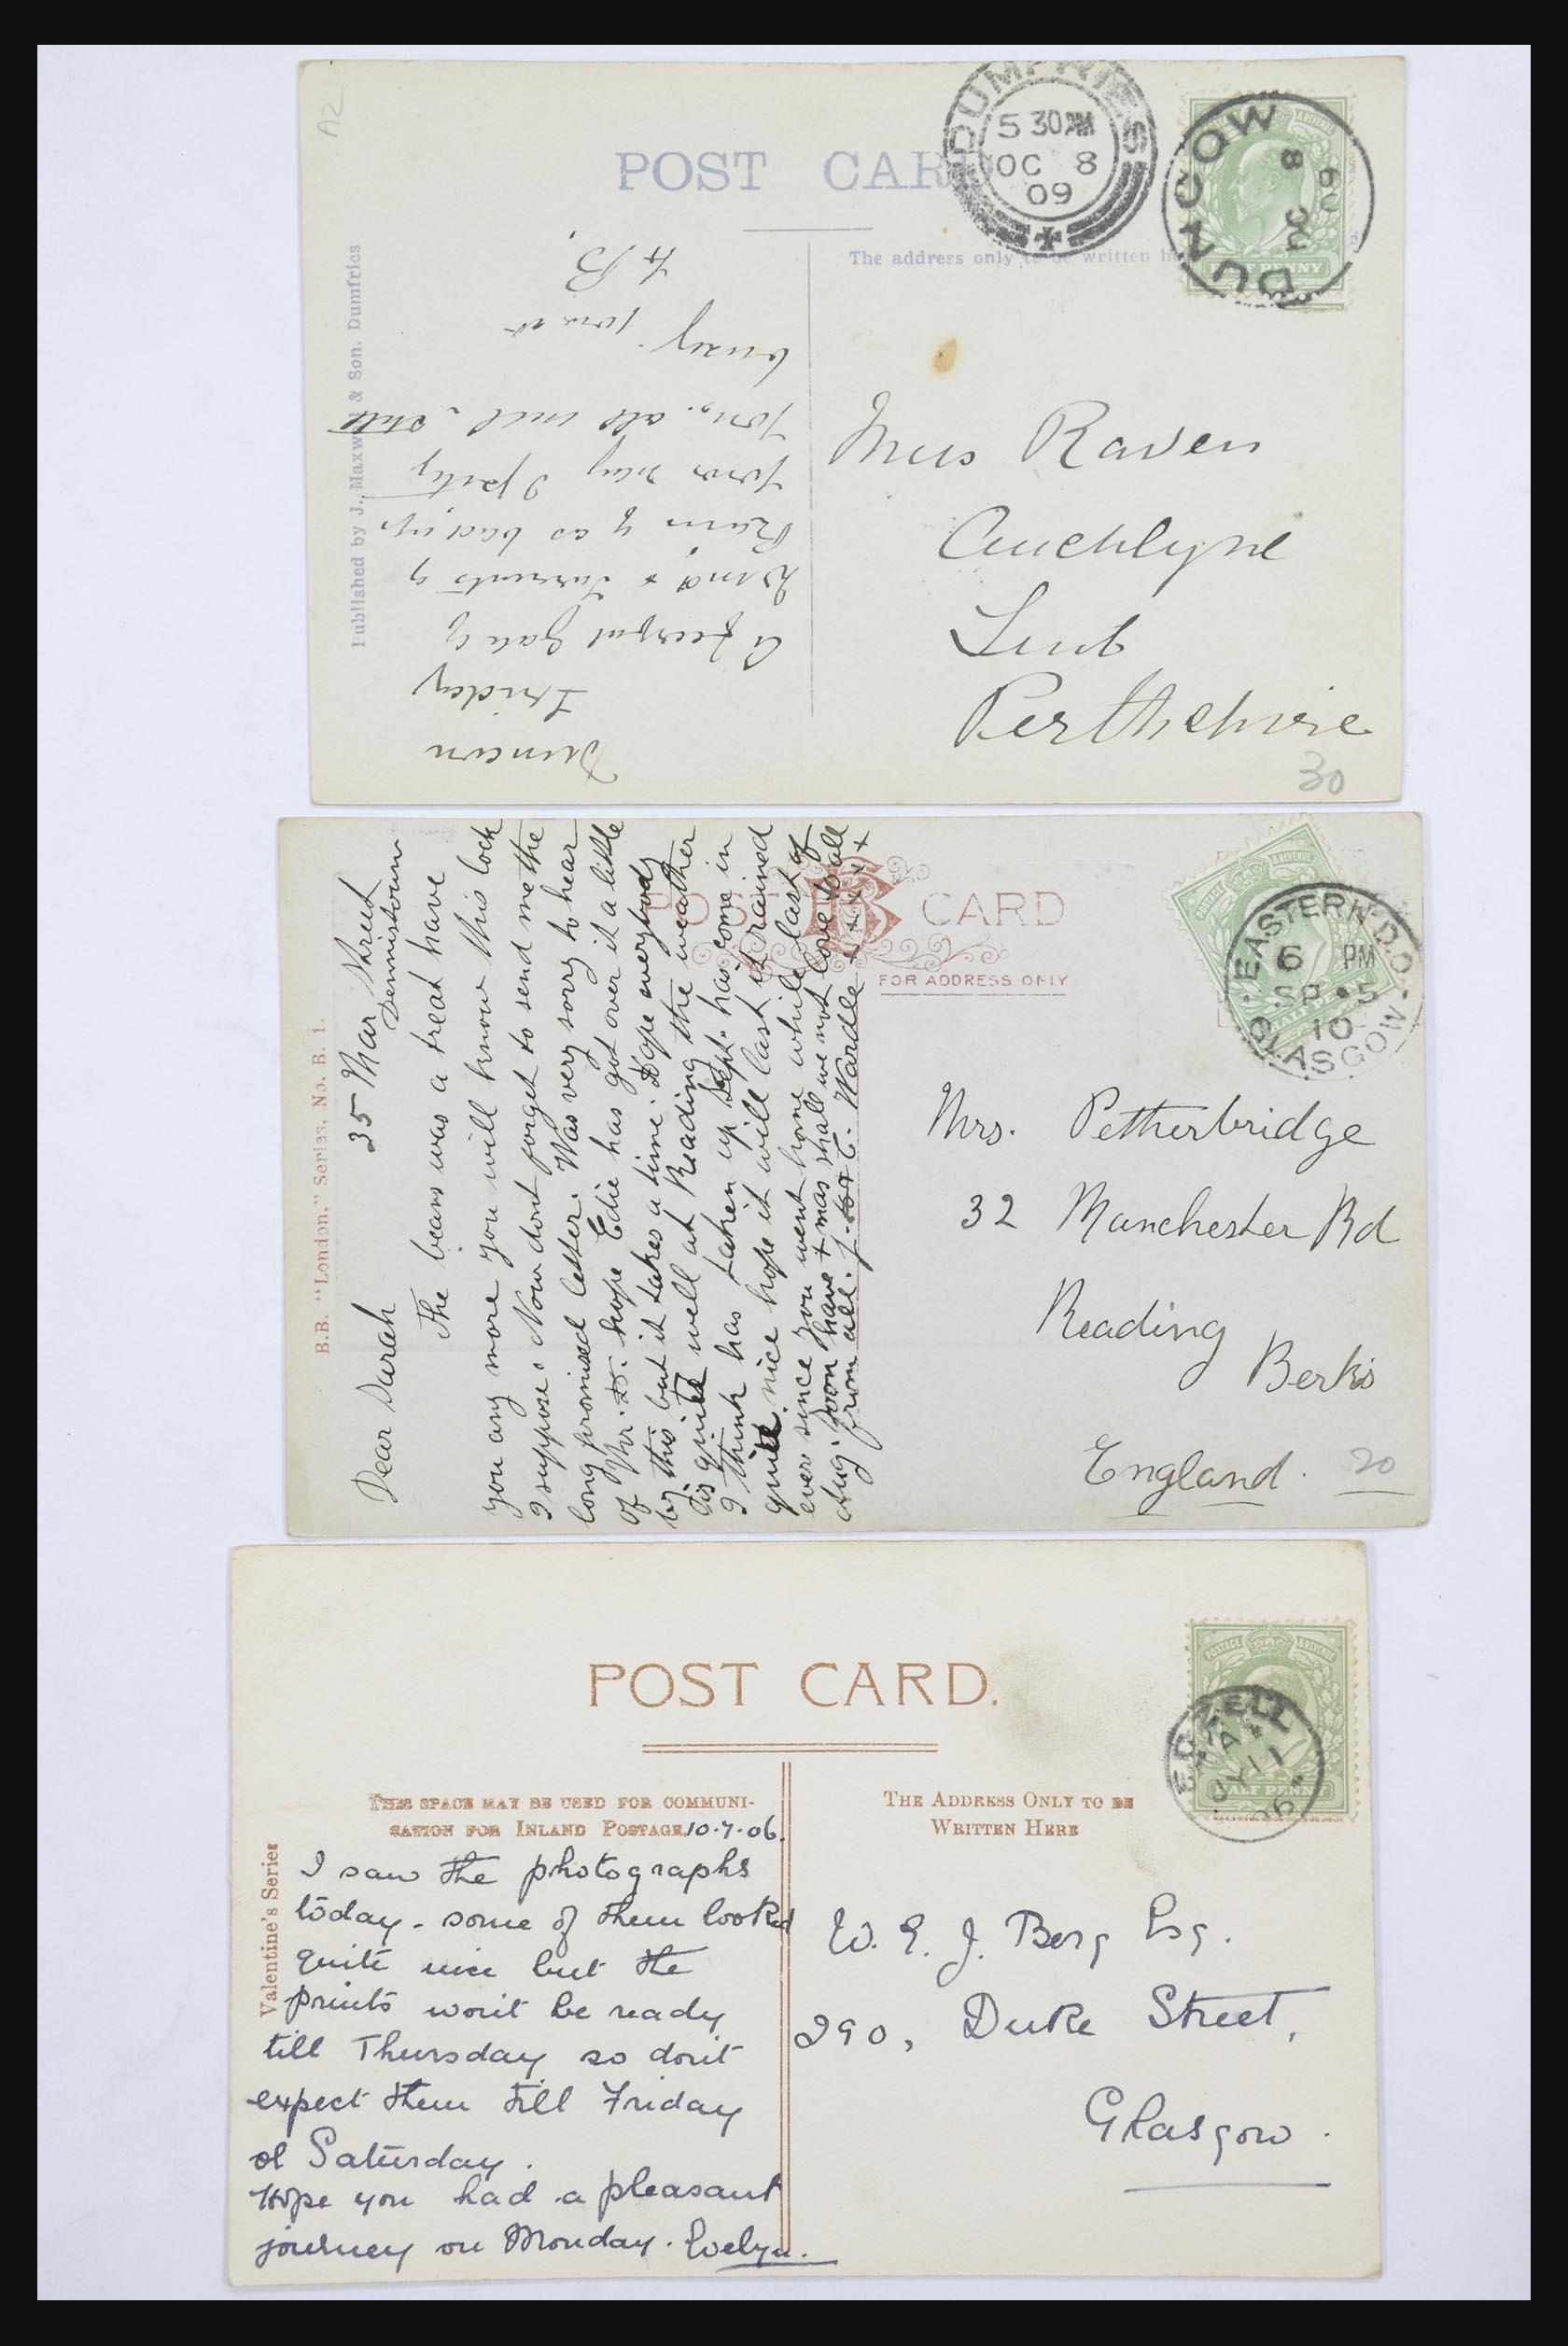 A2
POST CARD
DUMFRIES
5 30PM
OC 8
09
DUNCOW
8 OC
09
HALFPENNY
The address only to be written
Published by J. Maxwell & Son. Dumfries
Friday
A fearful Gale of
Wind & Torrents of
Rain
You. all
busy
Miss Raven
Auchlyne
Luib
Perthshire
30
POST CARD
FOR ADDRESS ONLY
B.B. "London," Series, No. B. 1.
EASTERN D.O.
6 PM
SP 5
10
GLASGOW
35 Mar Street
Dennistoun
Dear Sarah
The beans was a treat have
you any more you will know this lock
I suppose. Now dont forget to send me the
long promised letter. Was very sorry to hear
of Mr. hope Edie has got over it a little
by this but it takes a time. Hope everybody
is quite well at Reading the weather
I think has taken up Sept. has come in
quite nice hope it will last it rained
ever since you went home while last of
Aug. soon have Xmas shall we not love to all
from all. J. T. Wardle x x x x x
Mrs. Petherbridge
32 Manchester Rd
Reading
Berks
England.
20
POST CARD.
POSTAGE & REVENUE
EDZELL
JY 11
06
HALF PENNY
THIS SPACE MAY BE USED FOR COMMUNI-
CATION FOR INLAND POSTAGE 10.7.06.
THE ADDRESS ONLY TO BE
WRITTEN HERE
Valentine's Series
I saw the photographs
today - some of them looked
quite nice but the
prints won't be ready
till Thursday so don't
expect them till Friday
or Saturday.
Hope you had a pleasant
journey on Monday. Evelyn.
W. E. J. Berg Esq.
290, Duke Street,
Glasgow.